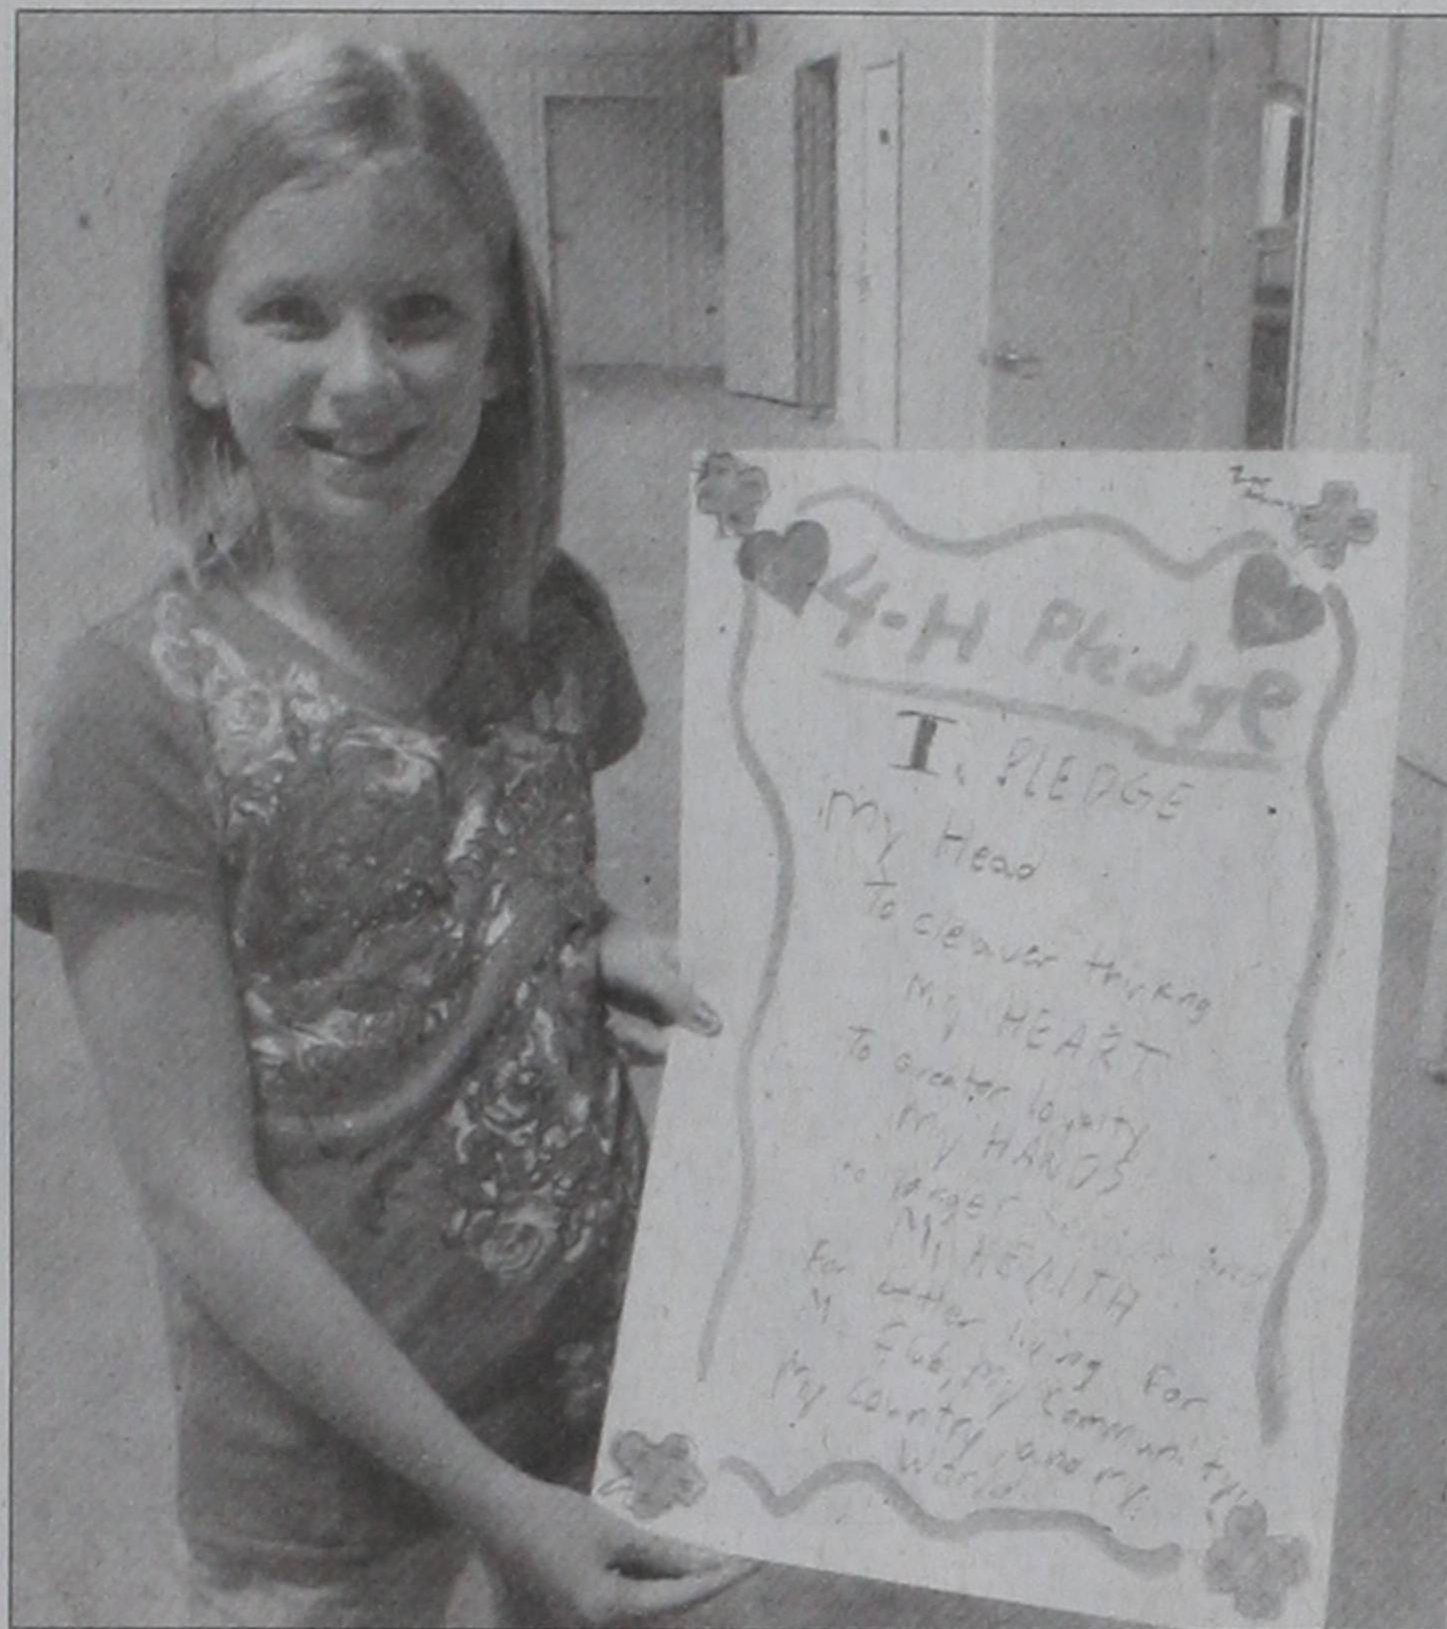 4-H Pledge
I PLEDGE
My Head
To cleaver thinking
My HEART
To Greater loyalty
My HANDS
to larger service and
My HEALTH
For better living For
My Club, My Community,
My Country, and my
World